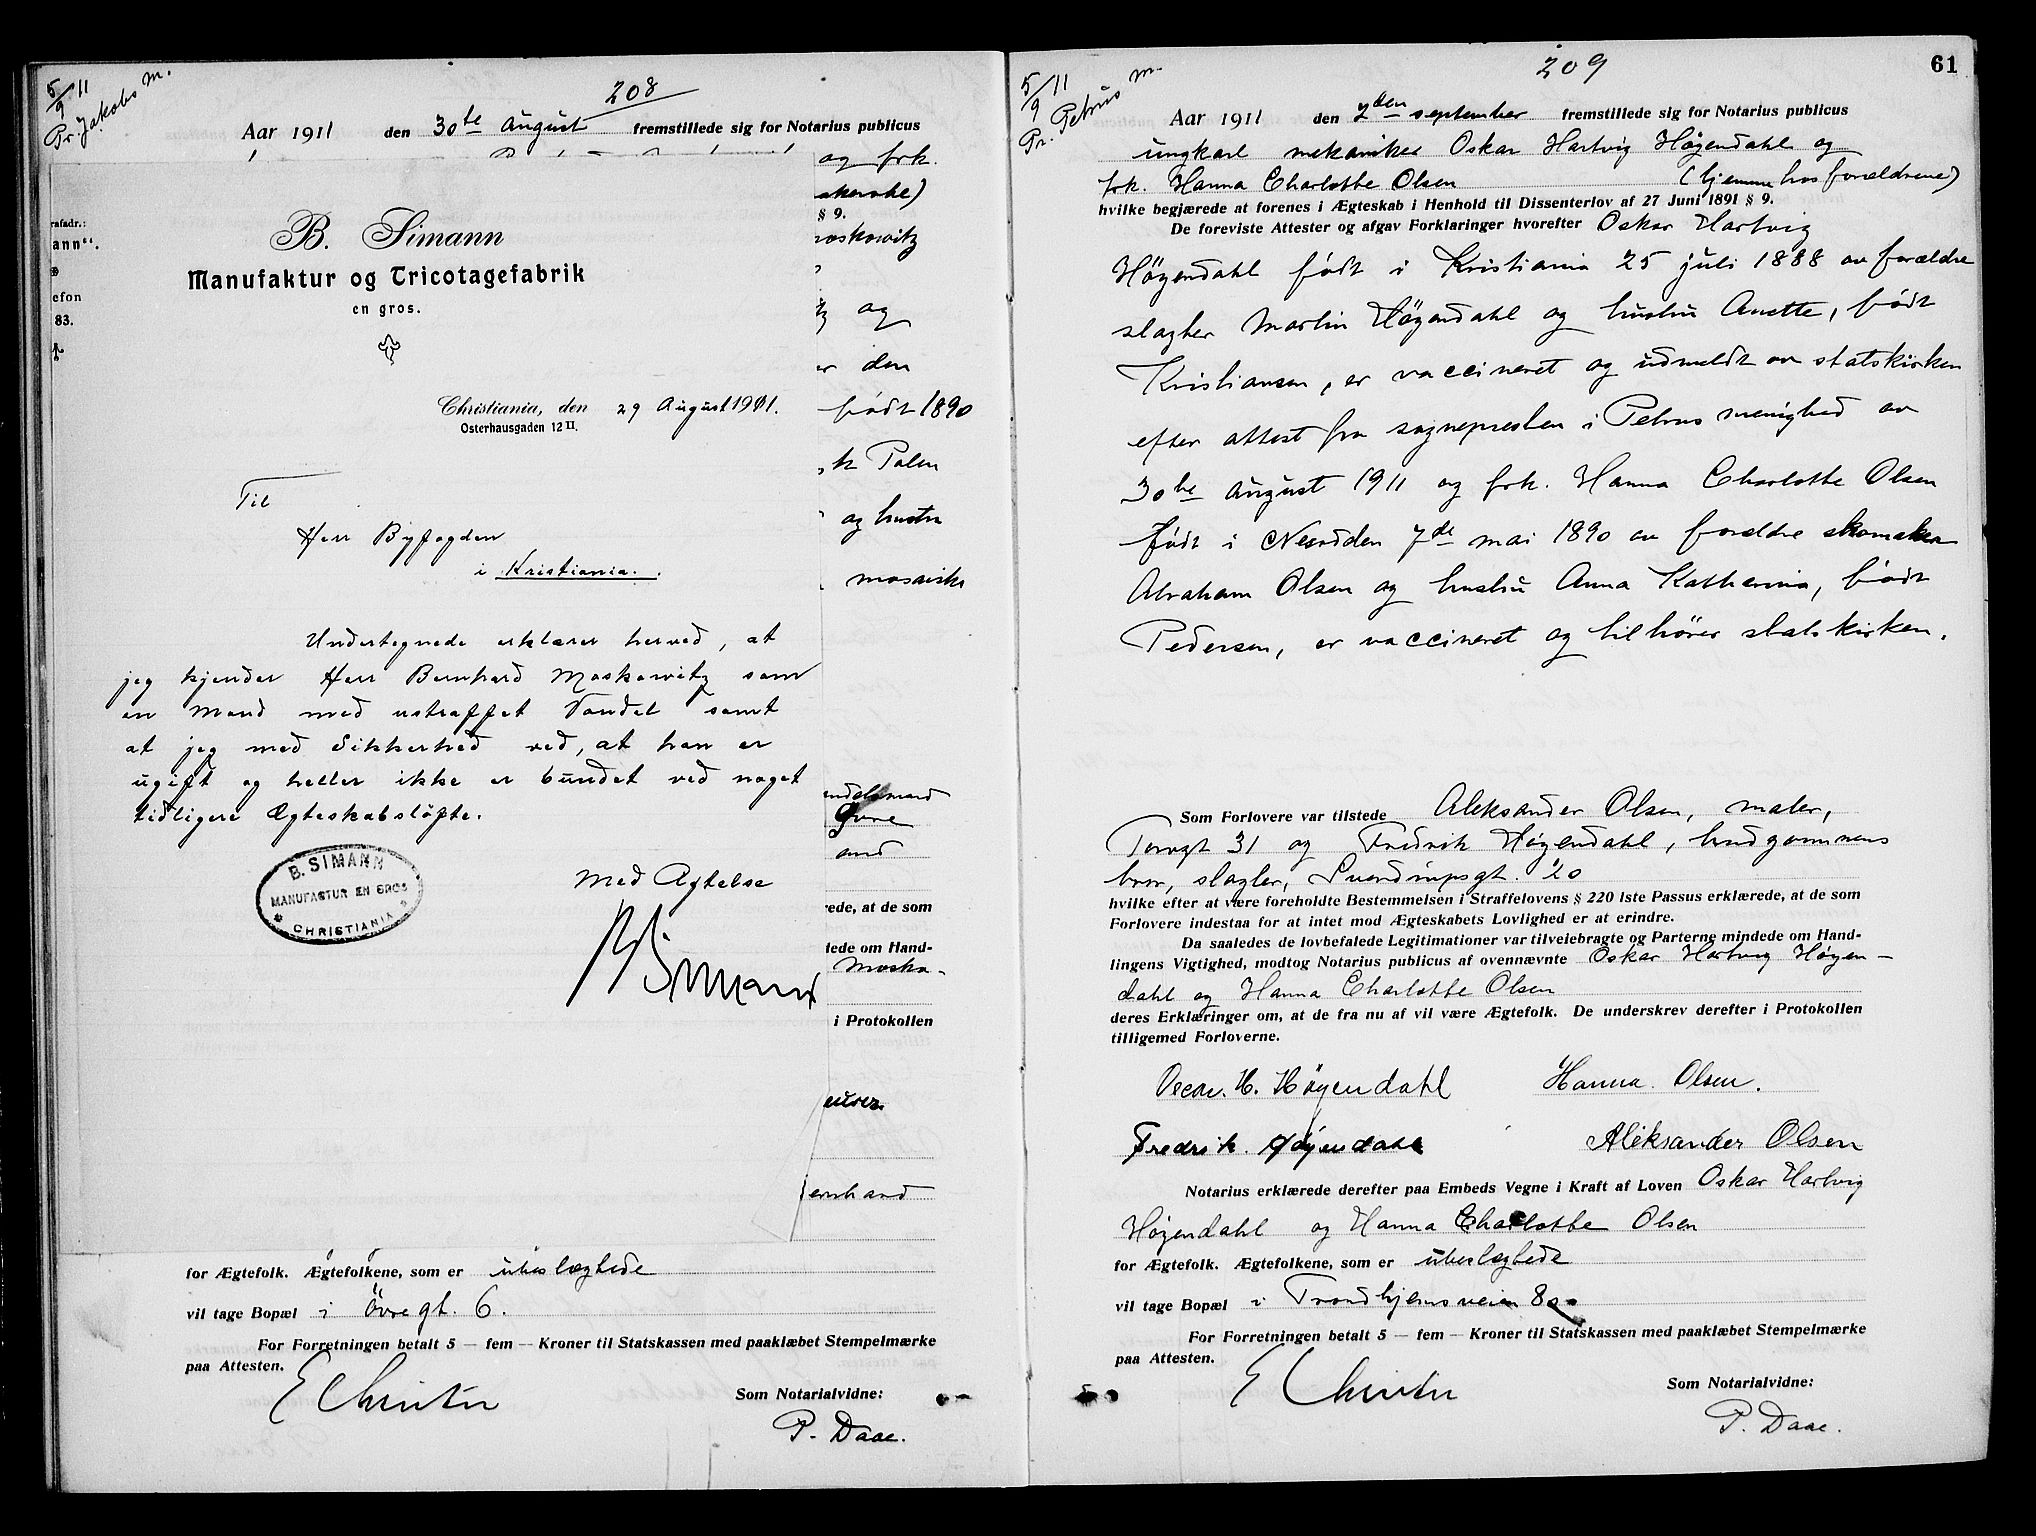 5/9 11
Pr. Jakobs m.
208
Aar 1911 den 30te august fremstillede sig for Notarius publicus
og frk.
§ 9.
oskowitz
rafadr.:
ann“.
efon
83.
B. Simann
Manufaktur og Tricotagefabrik
en gros.
og
er den
født 1890
Christiania, den 29 August 1911.
Osterhausgaden 12 II.
k Polen
og hustru
mosaiske
Til
Herr Byfogden
i Kristiania.
Undertegnede erklærer herved, at
jeg kjender Herr Bernhard Moskowitz som
en Mand med ustraffet Vandel samt
at jeg med Sikkerhed ved, at han er
ugift og heller ikke er bundet ved noget
tidligere Ægteskabsløfte.
ndelsmand
Øvre
and
Med Agtelse
B. SIMANN
MANUFACTUR EN GROS
CHRISTIANIA
BSimann
rede, at de som
tede om Hand-
Mosko-
i Protokollen
ernhard
for Ægtefolk. Ægtefolkene, som er ubeslægtede
vil tage Bopæl i Øvregt. 6.
For Forretningen betalt 5 — fem — Kroner til Statskassen med paaklæbet Stempelmærke
paa Attesten.
E Christie
Som Notarialvidne:
P. Daae.
61
5/9 11
Pr. Petrus m.
209
Aar 1911 den 2den september fremstillede sig for Notarius publicus
ungkarl mekaniker Oskar Hartvig Høgendahl og
frk. Hanna Charlotte Olsen (hjemme hos forældrene)
hvilke begjærede at forenes i Ægteskab i Henhold til Dissenterlov af 27 Juni 1891 § 9.
De foreviste Attester og afgav Forklaringer hvorefter Oskar Hartvig
Høgendahl født i Kristiania 25 juli 1888 av forældre
slagter Martin Høgendahl og hustru Anette, født
Kristiansen, er vaccineret og udmeldt av statskirken
efter attest fra sognepresten i Petrus menighed av
30te august 1911 og frk. Hanna Charlotte Olsen
født i Nesodden 7de mai 1890 av forældre skomaker
Abraham Olsen og hustru Anna Katherina, født
Pedersen, er vaccineret og tilhører statskirken.
Som Forlovere var tilstede Aleksander Olsen, maler,
Torvgt 31 og Fredrik Høgendahl, brudgommens
bror, slagter, Sverdrupsgt. 20
hvilke efter at være foreholdte Bestemmelsen i Straffelovens § 220 1ste Passus erklærede, at de som
Forlovere indestaa for at intet mod Ægteskabets Lovlighed er at erindre.
Da saaledes de lovbefalede Legitimationer var tilveiebragte og Parterne mindede om Hand-
lingens Vigtighed, modtog Notarius publicus af ovennævnte Oskar Hartvig Høgen-
dahl og Hanna Charlotte Olsen
deres Erklæringer om, at de fra nu af vil være Ægtefolk. De underskrev derefter i Protokollen
tilligemed Forloverne.
Oscar. H. Høgendahl Hanna Olsen.
Fredrik Høgendahl Aleksander Olsen
Notarius erklærede derefter paa Embeds Vegne i Kraft af Loven Oskar Hartvig
Høgendahl og Hanna Charlotte Olsen
for Ægtefolk. Ægtefolkene, som er ubeslægtede
vil tage Bopæl i Trondhjemsveien 80
For Forretningen betalt 5 — fem — Kroner til Statskassen med paaklæbet Stempelmærke
paa Attesten.
E Christie
Som Notarialvidne:
P. Daae.